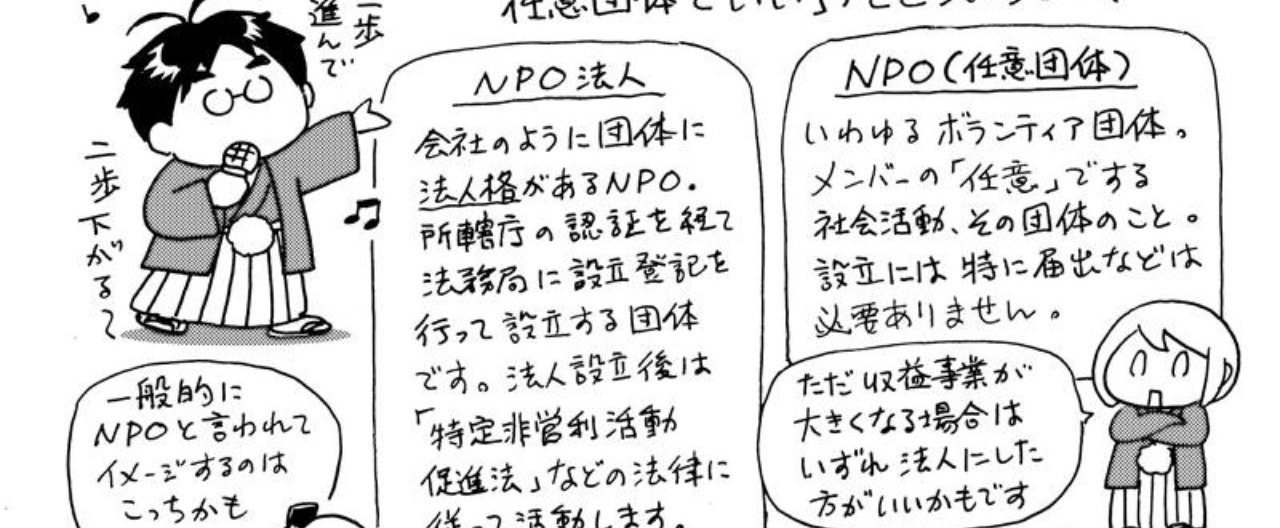 一歩
進んで
二歩下がる〜
NPO法人
会社のように団体に
法人格があるNPO。
所轄庁の認証を経て
法務局に設立登記を
行って設立する団体
です。法人設立後は
「特定非営利活動
促進法」などの法律に
従って活動します。
NPO(任意団体)
いわゆるボランティア団体。
メンバーの「任意」でする
社会活動、その団体のこと。
設立には特に届出などは
必要ありません。
ただ収益事業が
大きくなる場合は
いずれ法人にした
方がいいかもです
一般的に
NPOと言われて
イメージするのは
こっちかも